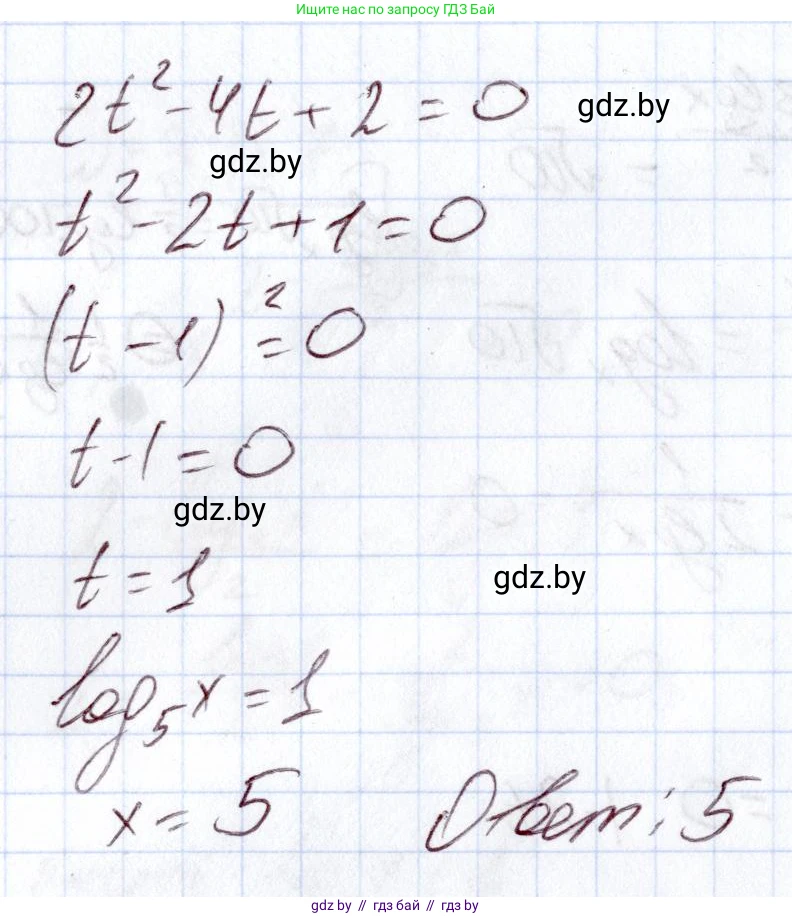 Ищите нас по запросу ГДЗ Бай
2t² - 4t + 2 = 0
gdz.by
gdz.by
t² - 2t + 1 = 0
(t - 1)² = 0
t - 1 = 0
gdz.by
t = 1
gdz.by
log₅x = 1
x = 5 Ответ: 5
gdz.by // гдз бай // gdz.by